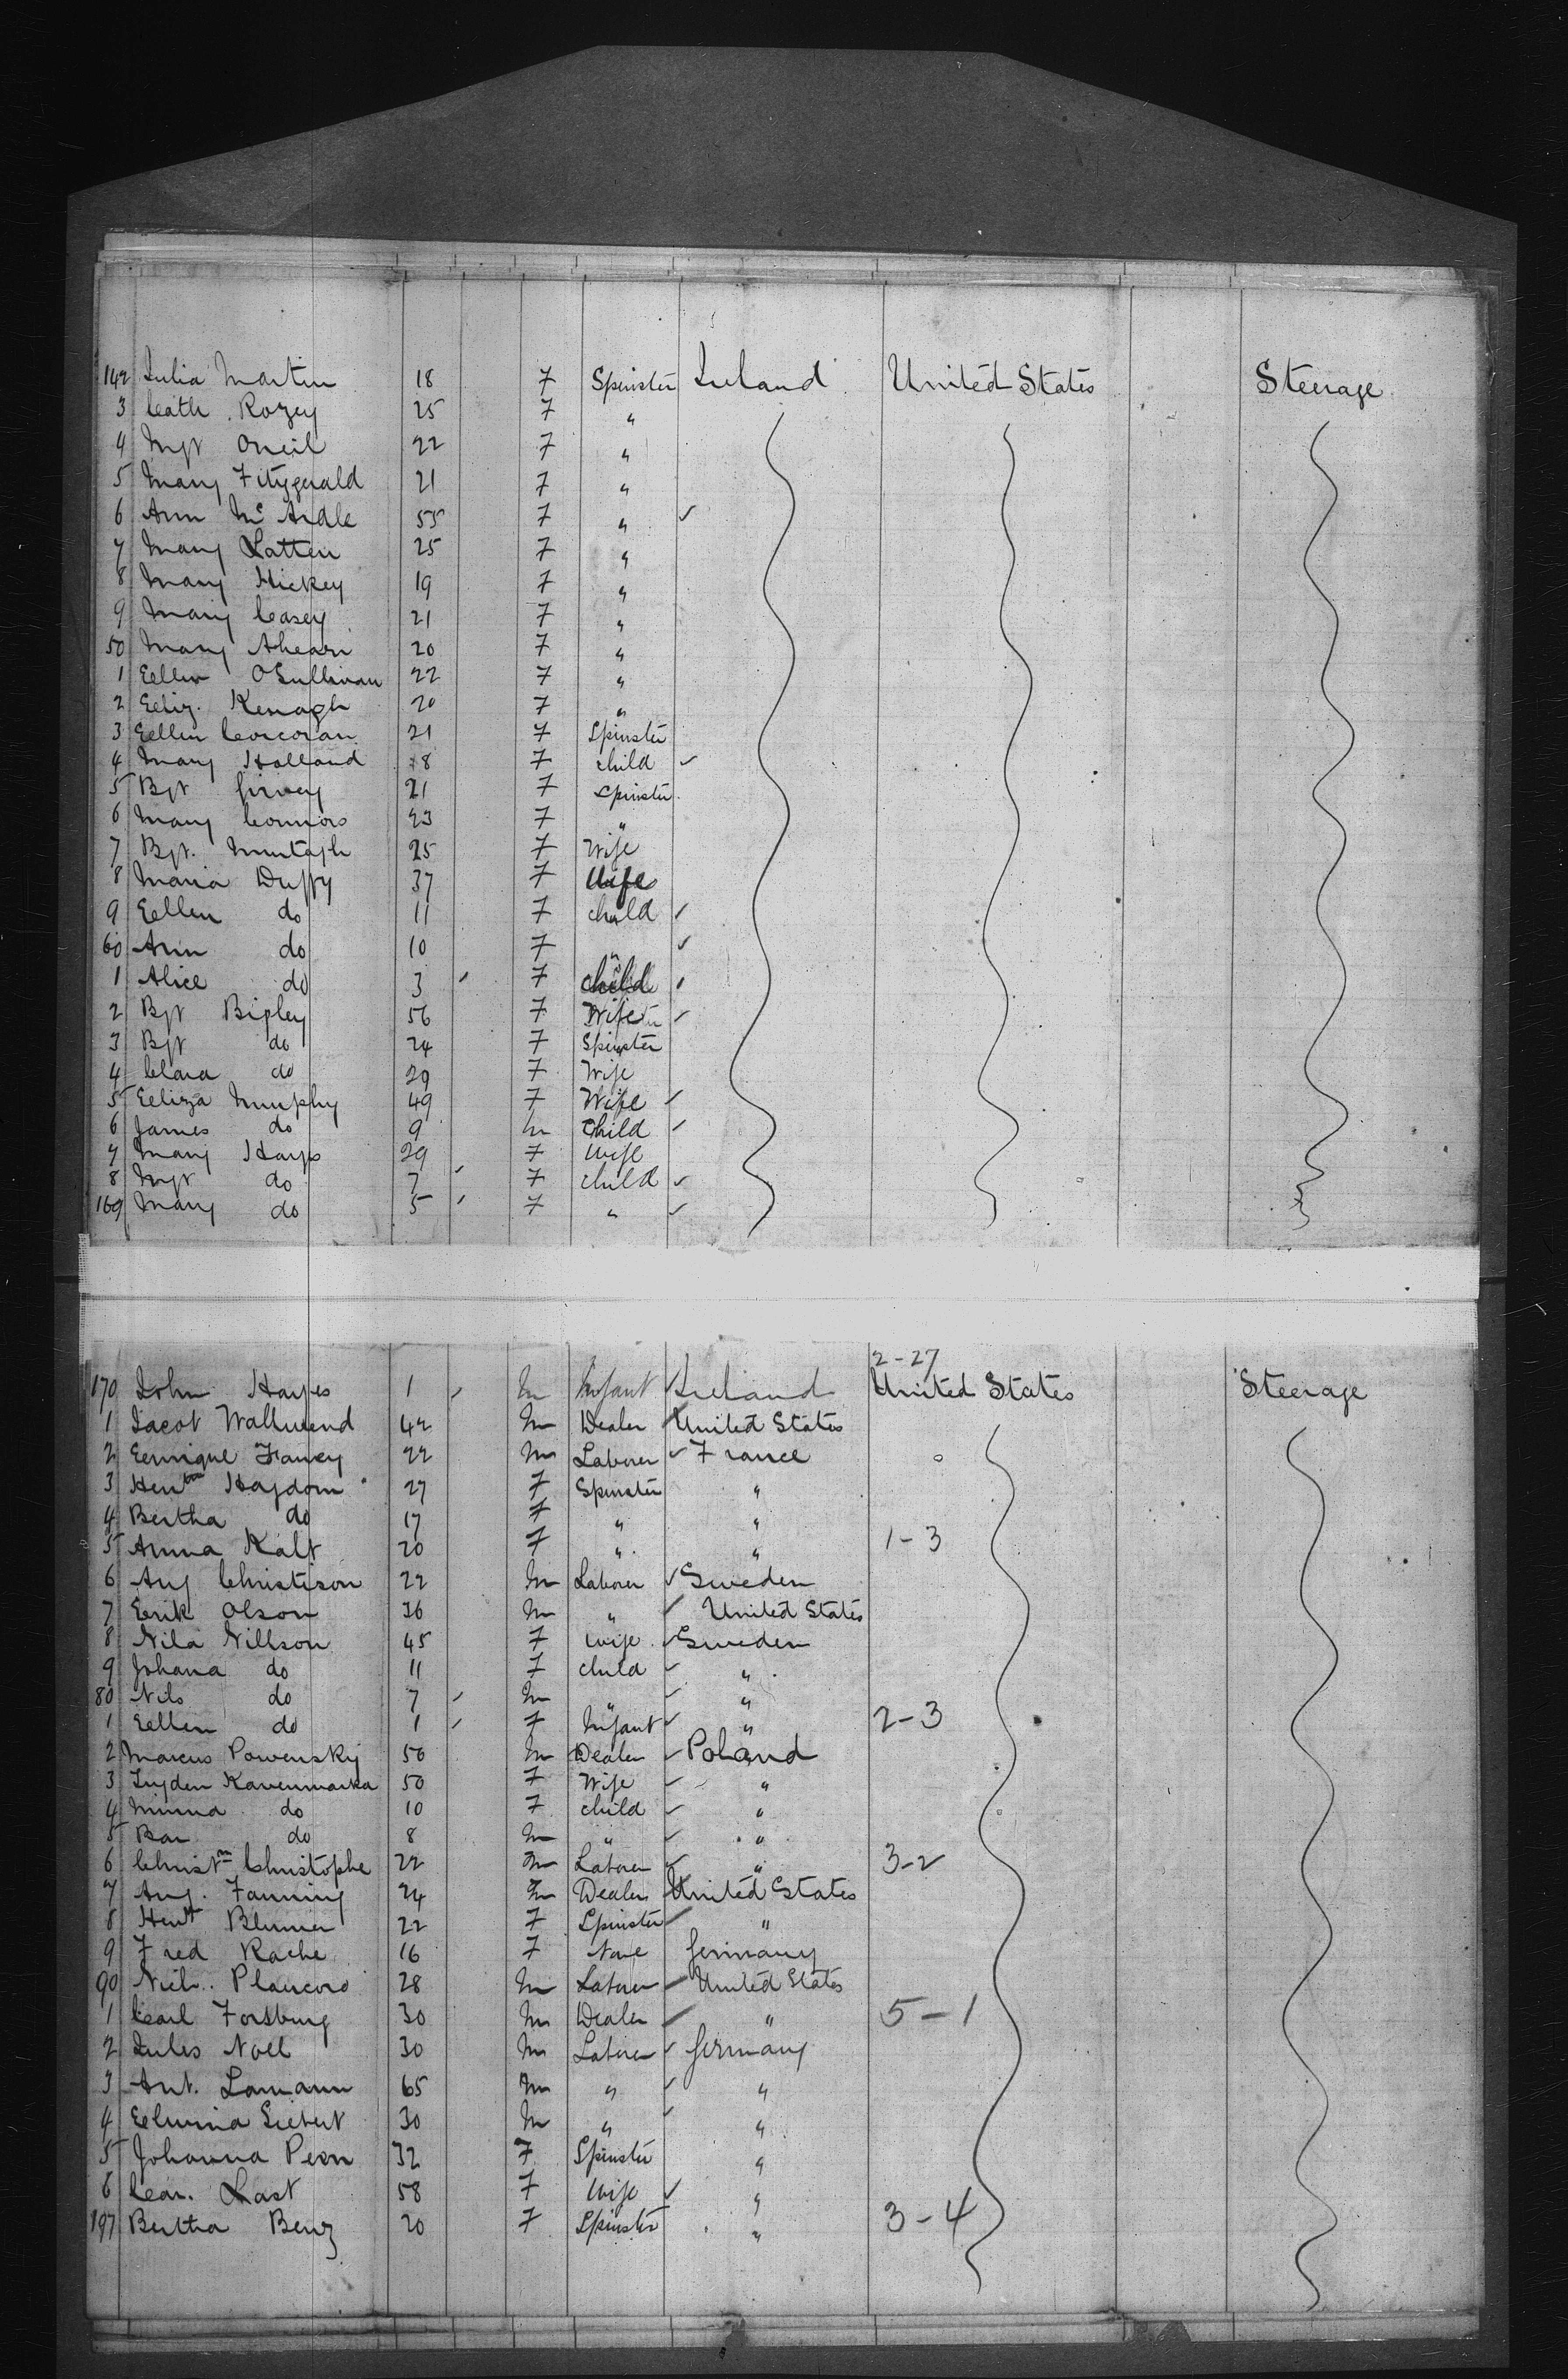 142 Julia Martin 18 F Spinster Ireland United States Steerage
3 Cath. Rozey 25 F "
4 Mgt Oneil 22 F "
5 Mary Fitzgerald 21 F "
6 Ann Mc Ardle 55 F " ✓
7 Mary Latten 25 F "
8 Mary Hickey 19 F "
9 Mary Casey 21 F "
50 Mary Ahearn 20 F "
1 Ellen OSullivan 22 F "
2 Eliz. Kenagh 20 F "
3 Ellen Corcoran 21 F Spinster
4 Mary Holland 8 F child ✓
5 Bgt 21 F Spinster
6 Mary Connors 23 F "
7 Bgt. Murtagh 25 F Wife
8 Maria Duffy 37 F Wife
9 Ellen do 11 F child ✓
60 Ann do 10 F " ✓
1 Alice do 3 F child
2 Bgt Bigley 56 F Wife ✓
3 Bgt do 24 F Spinster
4 Clara do 29 F Wife
5 Eliza Murphy 49 F Wife ✓
6 James do 9 m Child ✓
7 Mary Hayes 29 F Wife
8 Mgt do 7 F child ✓
169 Mary do 5 F " ✓
2-27
170 John Hayes 1 m Infant Ireland United States Steerage
1 Jacob 42 m Dealer United States
2 22 m Laborer ✓ France
3 Haydorn 27 F Spinster "
4 Bertha do 17 F " "
5 Anna Kalt 20 F " " 1-3
6 Aug Christison 22 m Laborer ✓ Sweden
7 Erik Olson 36 m " ✓ United States
8 Nila Nillson 45 F wife ✓ Sweden
9 Johana do 11 F child ✓ "
80 Nils do 7 m " ✓ "
1 Ellen do 1 F Infant ✓ " 2-3
2 Marcus Powensky 50 m Dealer ✓ Poland
3 50 F Wife ✓ "
4 Minna do 10 F child ✓ "
5 do 8 m " ✓ "
6 Christn Christophe 22 m Laborer ✓ " 3-2
7 Aug. Fanning 24 m Dealer United States
8 Blumer 22 F Spinster "
9 Fred Rache 16 F None Germany
90 Nich. 28 m Laborer United States
1 Carl Forsburg 30 m Dealer " 5-1
2 Jules Noel 30 m Laborer ✓ Germany
3 Ant. Lamann 65 m " ✓ "
4 Siebert 30 m " ✓ "
5 Johanna 32 F Spinster "
6 Last 58 F Wife ✓ "
197 Bertha Benz 20 F Spinster " 3-4